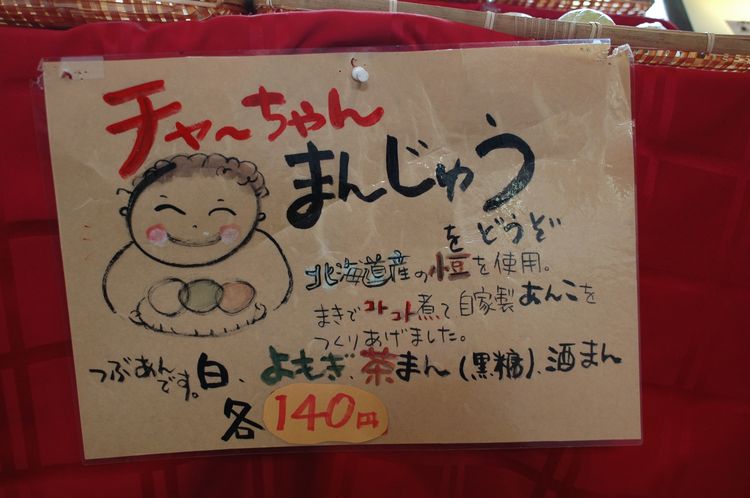 チャ〜ちゃん
まんじゅう
をどうぞ
北海道産の小豆を使用。
まきでコトコト煮て自家製あんこを
つくりあげました。
つぶあんです。白、よもぎ、茶まん(黒糖)、酒まん
各140円